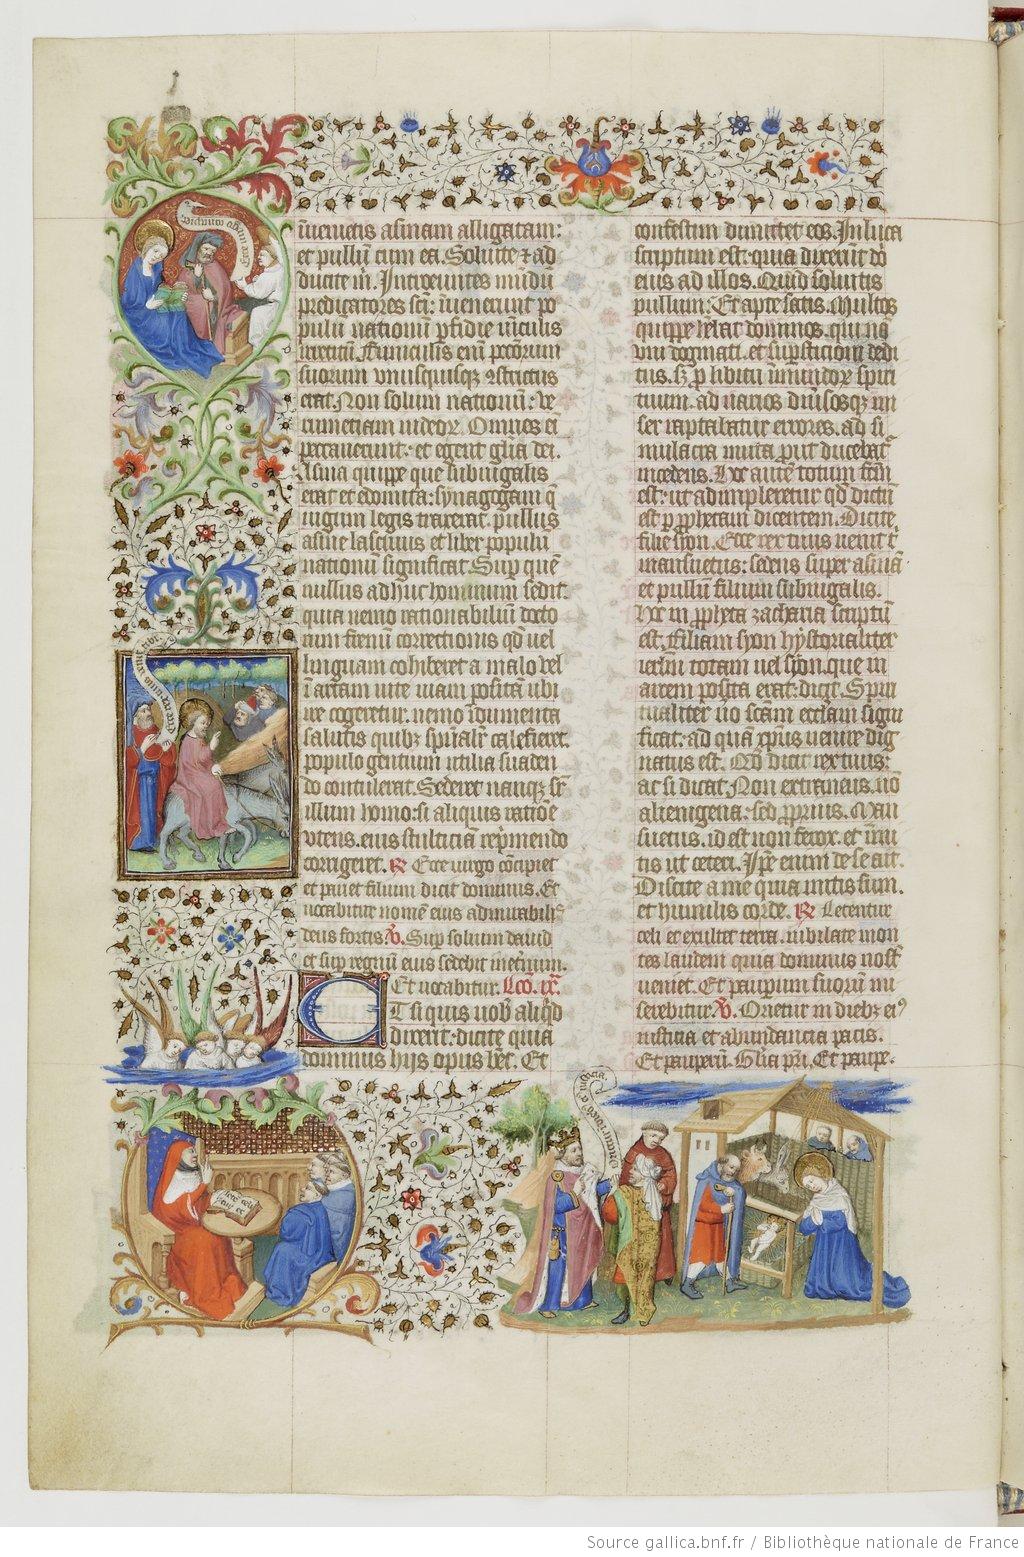 inuenietis asinam alligatam:
et pullum cum ea. Soluite et ad
ducite m. Introeuntes mundum
predicatores sci: inuenerunt po
pulum nationum perfidie vinculis
irretitum. Funiculis enim peccorum
suorum vnusquisque constrictus
erat. Non solum nationum: ve
rumetiam iudeor. Omnes ei
peccauerunt: et egent gla dei.
Asina quippe que subiugalis
erat et edomita: synagogam q
iugum legis traxerat. pullus
asine lasciuus et liber populum
nationum significat. Sup quem
nullus adhuc hominum sedit.
quia nemo rationabilium docto
rum frenum correctionis qd vel
linguam cohiberet a malo vel
in artam vite viam positam ubi
ire cogeretur. nemo indumenta
salutis quibz spualr calefieret.
populo gentium utilia suaden
do contulerat. Sederet nanque se
illum homo: si aliquis ratione
vtens. eius stulticiam reprimendo
corrigeret. R Ecce virgo concipiet
et pariet filium dicit dominus. Et
uocabitur nomen eius admirabilis
deus fortis. V. Sup solium dauid
et sup regnum eius sedebit ineternum.
Et uocabitur. Lco. ix.
ET si quis uob aliqd
dixerit: dicite quia
dominus hiis opus bet. Et
confestim dimittet eos. In luca
scriptum est: quia dixerint do
eius ad illos. Quid soluitis
pullum: Et apte satis. Multos
quippe habebat dominos. qui no
vni dogmati. et superstitioni dedi
tus. sz p libitu inmundor spiri
tuum. ad uarios diuisosque mi
ser raptabatur errores. ad si
mulacra muta prout ducebat
incedens. Hoc autem totum fcm
est: ut adimpleretur qd dictu
est p prophetam dicentem. Dicite
filie syon. Ecce rex tuus uenit t
mansuetus: sedens super asina
et pullum filium subiugalis.
Hoc in propheta zacharia scriptu
est. Filiam syon hystorialiter
irlm totam uel syon. que in
arcem posita erat: dicit. Spiri
tualiter uo scam ecclam signi
ficat: ad qua xpus uenire dig
natus est. Qd dicit rex tuus:
ac si dicat. Non extraneus. no
alienigena: sed proprius. Man
suetus. id est non ferox. et inmi
tis ut ceteri. Ipse enim de se ait.
Discite a me quia mitis sum.
et humilis corde. R Letentur
celi et exultet terra. iubilate mon
tes laudem quia dominus nost
ueniet. Et pauperum suorum mi
serebitur. V. Orietur in diebz ei9
iusticia et abundancia pacis.
Et pauperum. Glia pri. Et paupe.
Source gallica.bnf.fr / Bibliothèque nationale de France